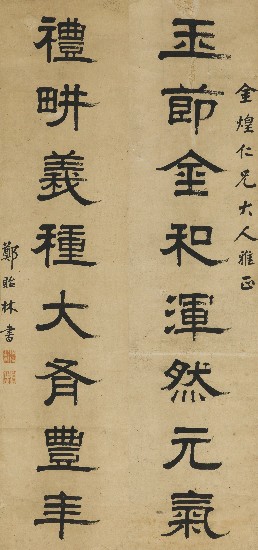 金煌仁兄大人雅正
玉節金和渾然元氣
禮畊義種大有豐年
鄭貽林書